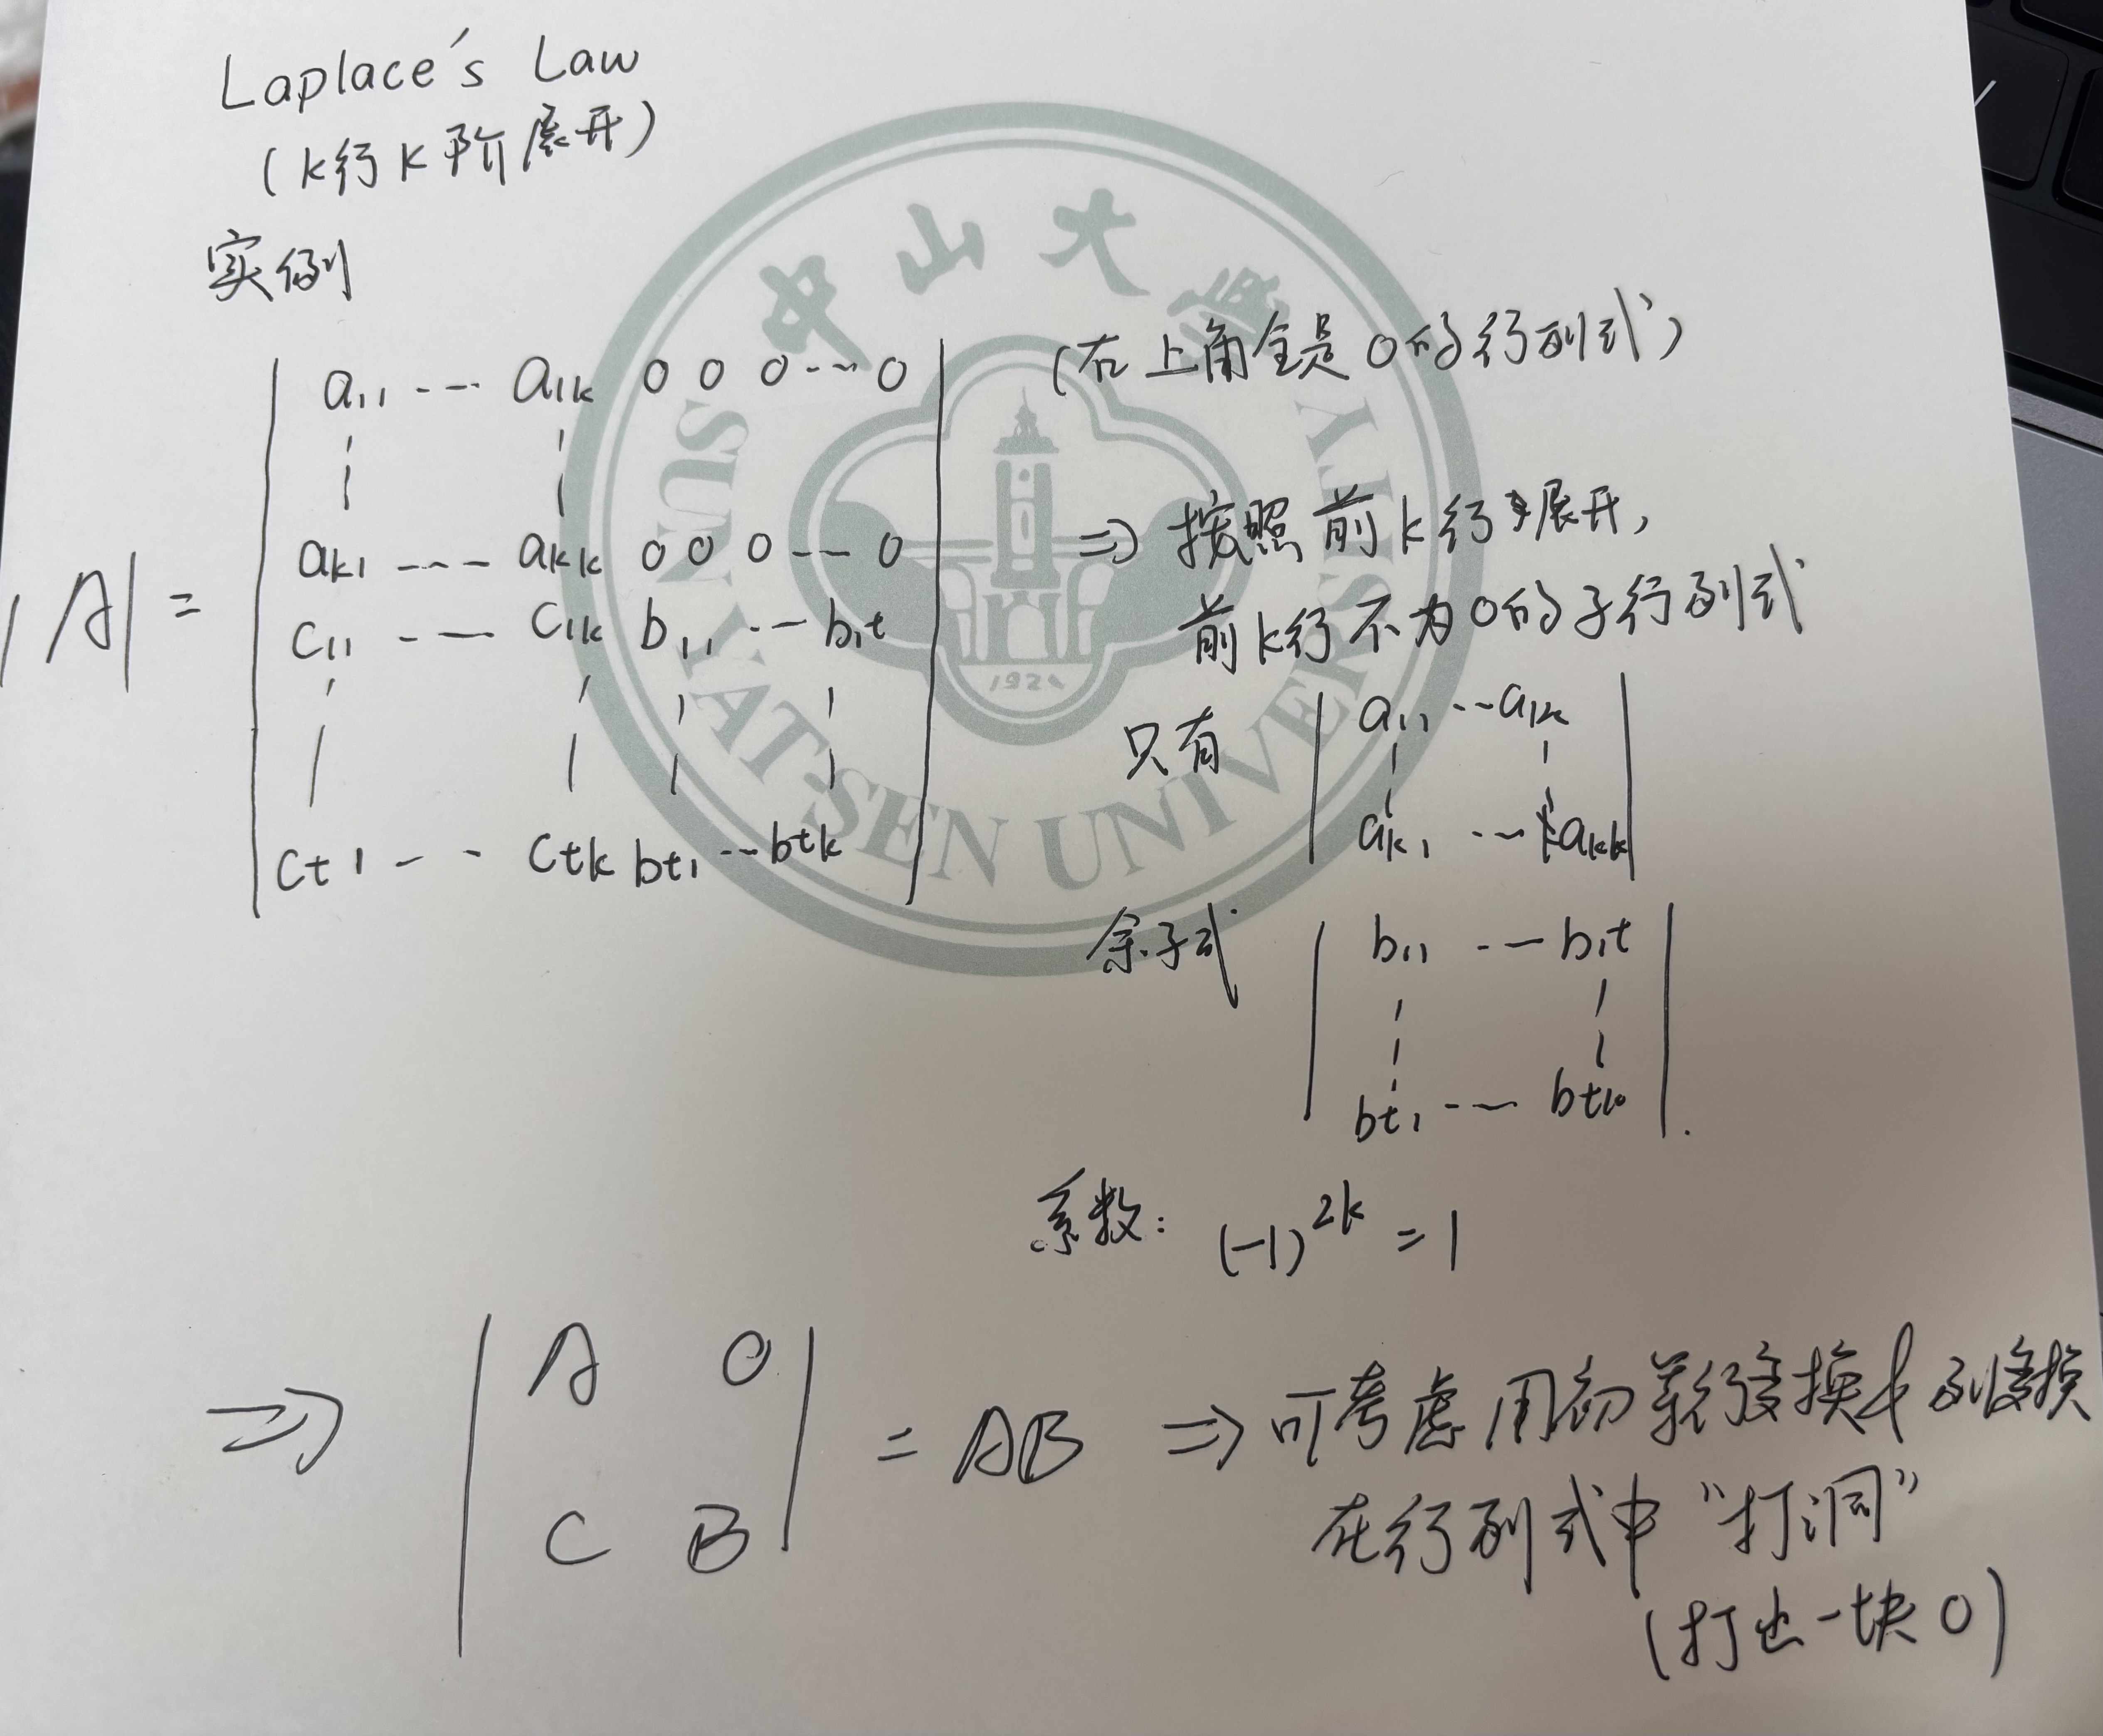 Laplace's Law
(k行k阶展开)
实例
(右上角全是0的行列式)
|A| =
a11 --- a1k 0 0 0 --- 0
ak1 ---- akk 0 0 0 --- 0
c11 --- c1k b11 --- b1t
ct1 -- ctk bt1 --- btk
⇒ 按照前k行展开,
前k行不为0的子行列式
只有
a11 --- a1k
ak1 --- akk
余子式
b11 --- b1t
bt1 --- btk
系数: (-1)^2k = 1
⇒ | A 0 |
| C B |
= AB ⇒ 可考虑用初等行变换 列变换
在行列式中“打洞”
(打出一块0)
中山大學
SUN YAT-SEN UNIVERSITY
1924